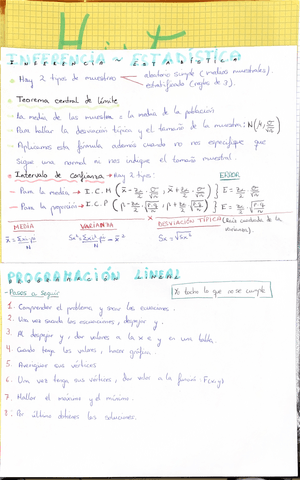 INFERENCIA ~ ESTADÍSTICA
Hay 2 tipos de muestreo
aleatorio simple (medias muestrales).
estratificado (regla de 3).
Teorema central de límite
La media de las muestras = la media de la población
Para hallar la desviación típica y el tamaño de la muestra: N(μ, σ/√n)
Aplicamos esta fórmula además cuando no nos especifique que
sigue una normal ni nos indique el tamaño muestral.
Intervalo de Confianza → Hay 2 tipos:
ERROR
Para la media → I.C.M
Para la proporción → I.C.P
MEDIA
VARIANZA
DESVIACIÓN TÍPICA (Raíz cuadrada de la
varianza).
PROGRAMACIÓN LINEAL
- Pasos a seguir
lo que no se cumple
1: Comprender el problema y sacar las ecuaciones.
2: Una vez sacado las ecuaciones, despejar y.
3: Al despejar y, dar valores a la x e y en una tabla.
4: Cuando tenga los valores, hacer gráfica.
5: Averiguar sus vértices
6: Una vez tenga sus vértices, dar valor a la función: F(x,y)
7: Hallar el máximo y el mínimo.
8: Por último obtienes las soluciones.